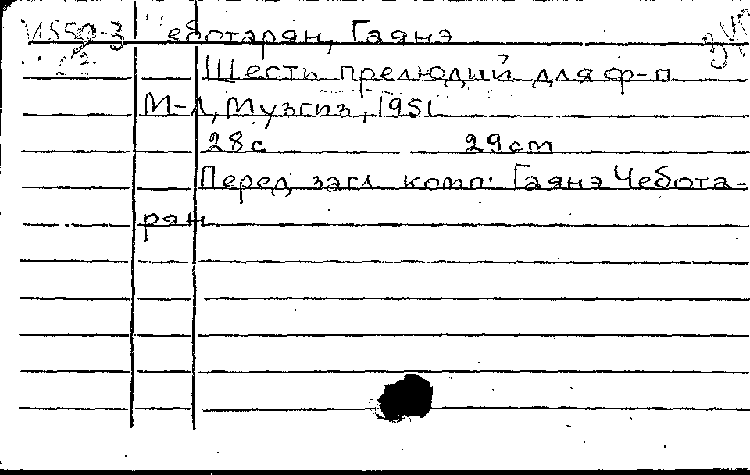 И550-3 еботарян, Гаянэ
Шесть прелюдий для ф-п
М-Л, Музгиз, 1951
28с 29cm
Перед загл. комп: Гаянэ Чебота-
рян